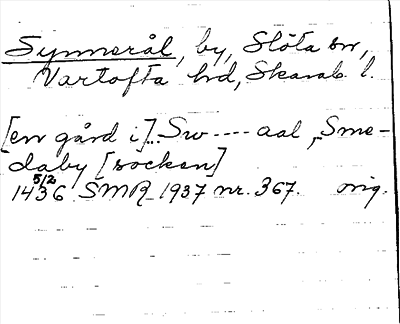 Synnerål, by, Slöta sn,
Vartofta hd, Skarab. l.
[en gård i]... Sw----aal, Sme-
daby [socken]
14 5/2 36 SMR 1937 nr. 367. orig.